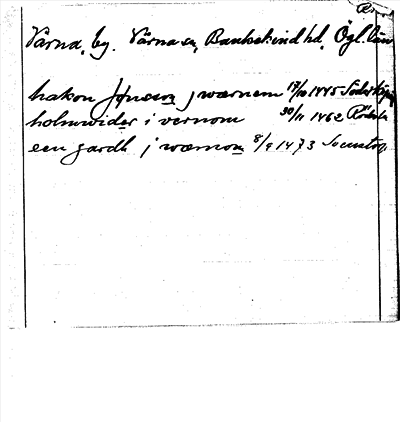 Värna, by. Värna sn, Bankekind hd, Ögl. län
hakon Jonson j wærnem 17/10 1445 Söderköping
holmvider i vernom 30/11 1462 Rödsta
een gardh j wærnom 8/9 1473